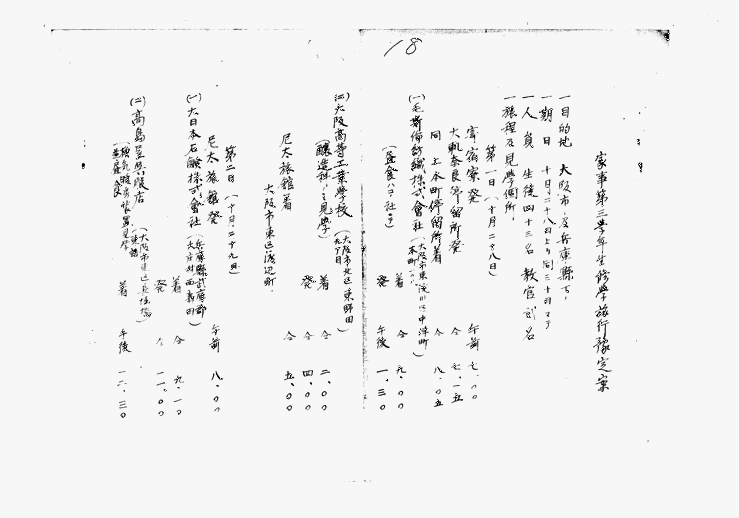 18
家事第三學年生修學旅行豫定案
一目的地 大阪市及兵庫縣下、
一期日 十月二十八日より同三十日マデ
一人員 生徒四十三名 教官貳名
一旅程及見學個所、
第一日(十月二十八日)
寄宿寮發 午前 七、〇〇
大軌奈良停留所發 仝 七、一五
同 上本町停留所着 仝 八、〇五
(一)毛斯倫紡織株式會社(大阪市東淀川区中津町) 着 仝 九、〇〇
(昼食ハ本社ニテ) 發 午後 一、三〇
(二)大阪高等工業學校(大阪市北区東野田九丁目) 着 仝 二、〇〇
(醸造科ノミ見學) 發 仝 四、〇〇
尼太旅館着 仝 五、〇〇
大阪市東区渡辺町、
第二日(十月二十九日)
尼太旅館發 午前 八、〇〇
(一)大日本石鹸株式會社(兵庫縣武庫郡) 着 仝 九、一〇
發 仝 一一、〇〇
(二)高島屋呉服店 着 午後 一二、三〇